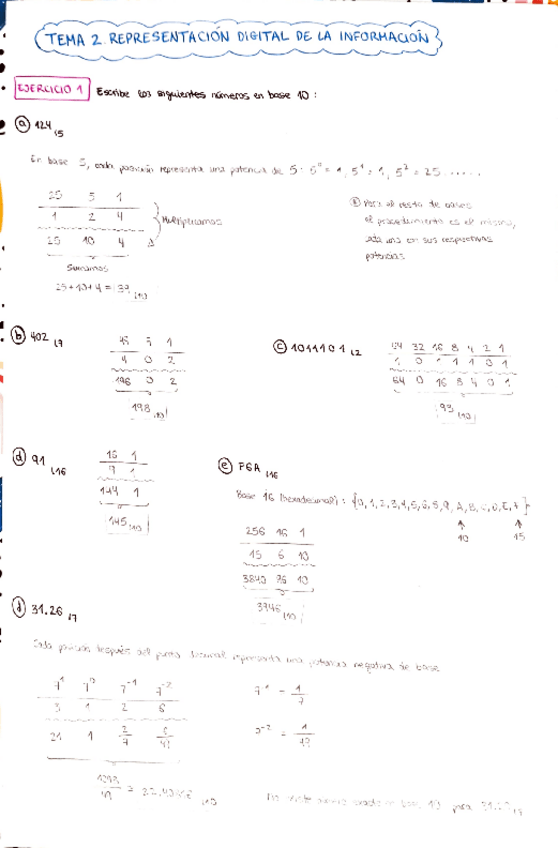 TEMA 2. REPRESENTACIÓN DIGITAL DE LA INFORMACIÓN
EJERCICIO 1 Escribe los siguientes números en base 10:
a 124 (5
En base 5, cada posición representa una potencia de 5: 5⁰ = 1, 5¹ = 1, 5² = 25 ......
25 5 1
1 2 4
25 10 4
Multiplicamos
Sumamos
25 + 10 + 4 = 39 (10
Para el resto de bases
el procedimiento es el mismo,
cada una con sus respectivas
potencias
b 402 (7
1
4 0 2
196 0 2
198 (10
c 1011101 (2
64 32 16 8 4 2 1
1 0 1 1 1 0 1
64 0 16 8 4 0 1
93 (10
d 91 (16
16 1
9 1
144 1
145 (10
e F6A (16
Base 16 (hexadecimal): {0, 1, 2, 3, 4, 5, 6, 9, A, B, C, D, E, F}
10 15
256 16 1
15 6 10
3840 96 10
3946 (10
f 31.26 (7
Cada posición después del punto decimal representa una potencia negativa de base
7¹ 7⁰ 7⁻¹ 7⁻²
3 1 2 6
21 1 2/7 6/49
7⁻¹ = 1/7
= 1/49
(10